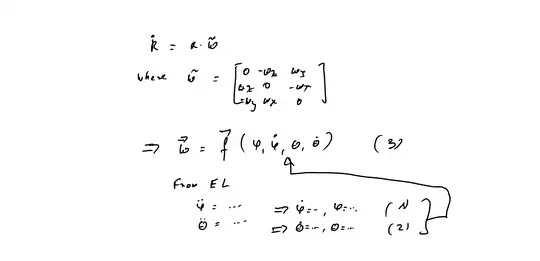 Ṙ = R · ω̃
where ω̃ = [ 0 -ωz ωy
ωz 0 -ωx
-ωy ωx 0 ]
⇒ ω⃗ = f⃗ ( φ, φ̇, θ, θ̇ ) (3)
From EL
φ̈ = ... ⇒ φ̇ = .., φ = ... (1)
θ̈ = ... ⇒ θ̇ = ..., θ = ... (2)